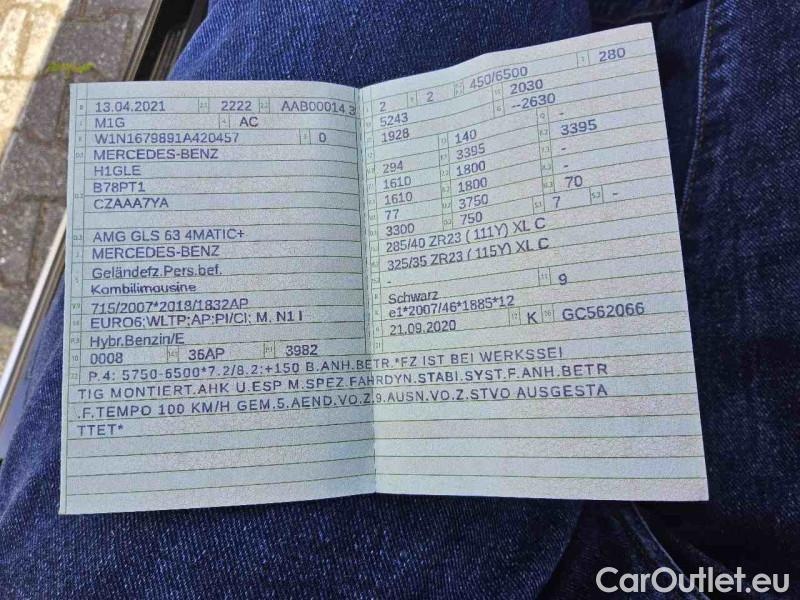 13.04.2021 2222 AAB00014 3
M1G AC
W1N1679891A420457 0
MERCEDES-BENZ
H1GLE
B78PT1
CZAAA7YA
AMG GLS 63 4MATIC+
MERCEDES-BENZ
Geländefz.Pers.bef.
Kombilimousine
715/2007*2018/1832AP
EURO6;WLTP;AP;PI/CI; M, N1 I
Hybr.Benzin/E
0008 36AP 3982
2 2 450/6500 280
5243 2030
1928 --2630
- 140 -
294 3395 3395
1610 1800 -
1610 1800 -
77 3750 70
3300 750 7 -
285/40 ZR23 ( 111Y) XL C
325/35 ZR23 ( 115Y) XL C
-
Schwarz 9
e1*2007/46*1885*12
21.09.2020 K GC562066
P.4: 5750-6500*7.2/8.2:+150 B.ANH.BETR.*FZ IST BEI WERKSSEI
TIG MONTIERT.AHK U.ESP M.SPEZ.FAHRDYN.STABI.SYST.F.ANH.BETR
.F.TEMPO 100 KM/H GEM.5.AEND.VO.Z.9.AUSN.VO.Z.STVO AUSGESTA
TTET*
CarOutlet.eu